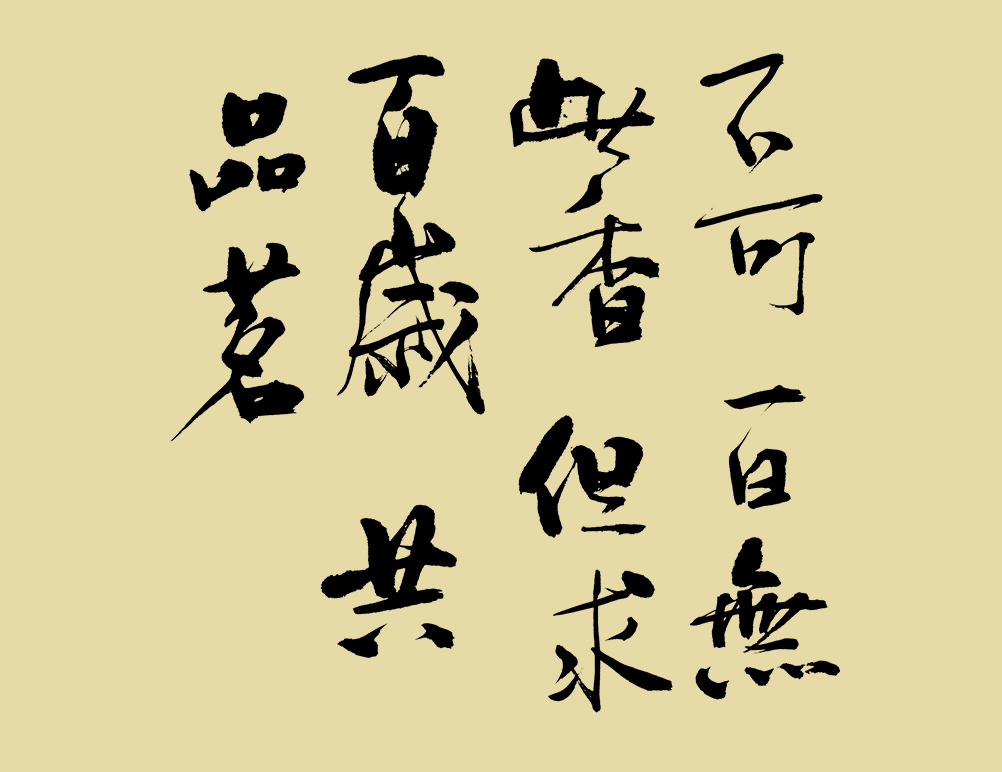 不可一日無
此香但求
百歲共
品茗